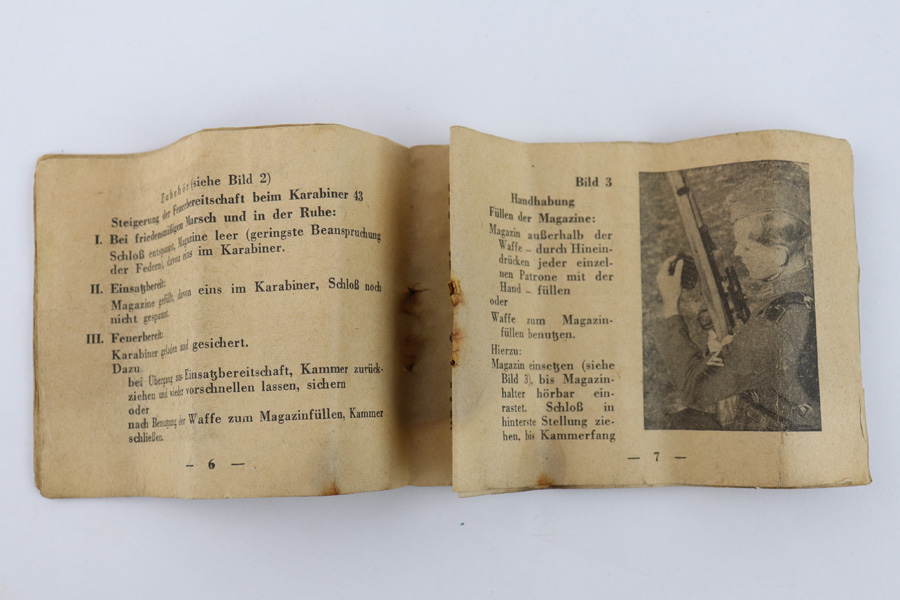 Zubehör (siehe Bild 2)
Steigerung der Feuerbereitschaft beim Karabiner 43
I. Bei friedensmäßigem Marsch und in der Ruhe:
Schloß entspannt, Magazine leer (geringste Beanspruchung
der Federn), davon eins im Karabiner.
II. Einsatzbereit:
Magazine gefüllt, davon eins im Karabiner, Schloß noch
nicht gespannt.
III. Feuerbereit:
Karabiner geladen und gesichert.
Dazu
bei Übergang aus Einsatzbereitschaft, Kammer zurück-
ziehen und wieder vorschnellen lassen, sichern
oder
nach Benutzung der Waffe zum Magazinfüllen, Kammer
schließen.
— 6 —
Bild 3
Handhabung
Füllen der Magazine:
Magazin außerhalb der
Waffe – durch Hinein-
drücken jeder einzel-
nen Patrone mit der
Hand – füllen
oder
Waffe zum Magazin-
füllen benutzen.
Hierzu:
Magazin einsetzen (siehe
Bild 3), bis Magazin-
halter hörbar ein-
rastet. Schloß in
hinterste Stellung zie-
hen, bis Kammerfang
— 7 —